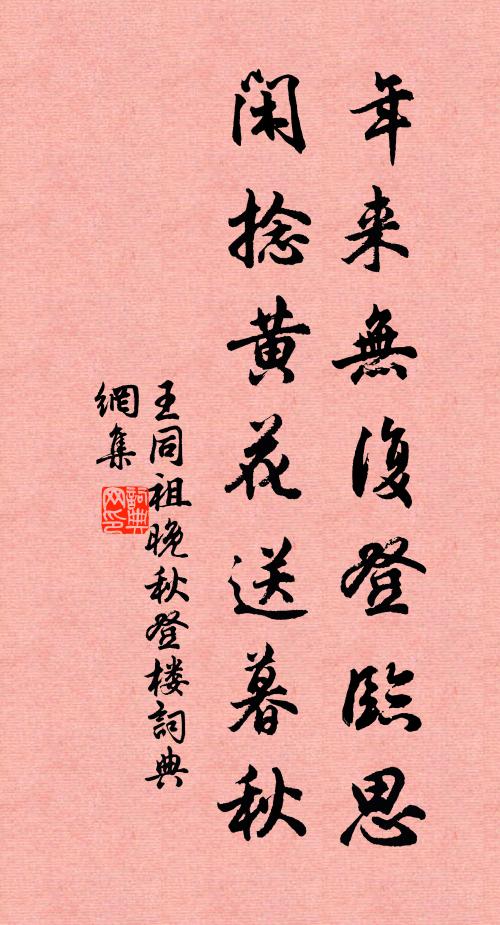 年来無復登臨思
閑捻黄花送暮秋
王同祖晚秋登楼詞典
網集
詞典
网印